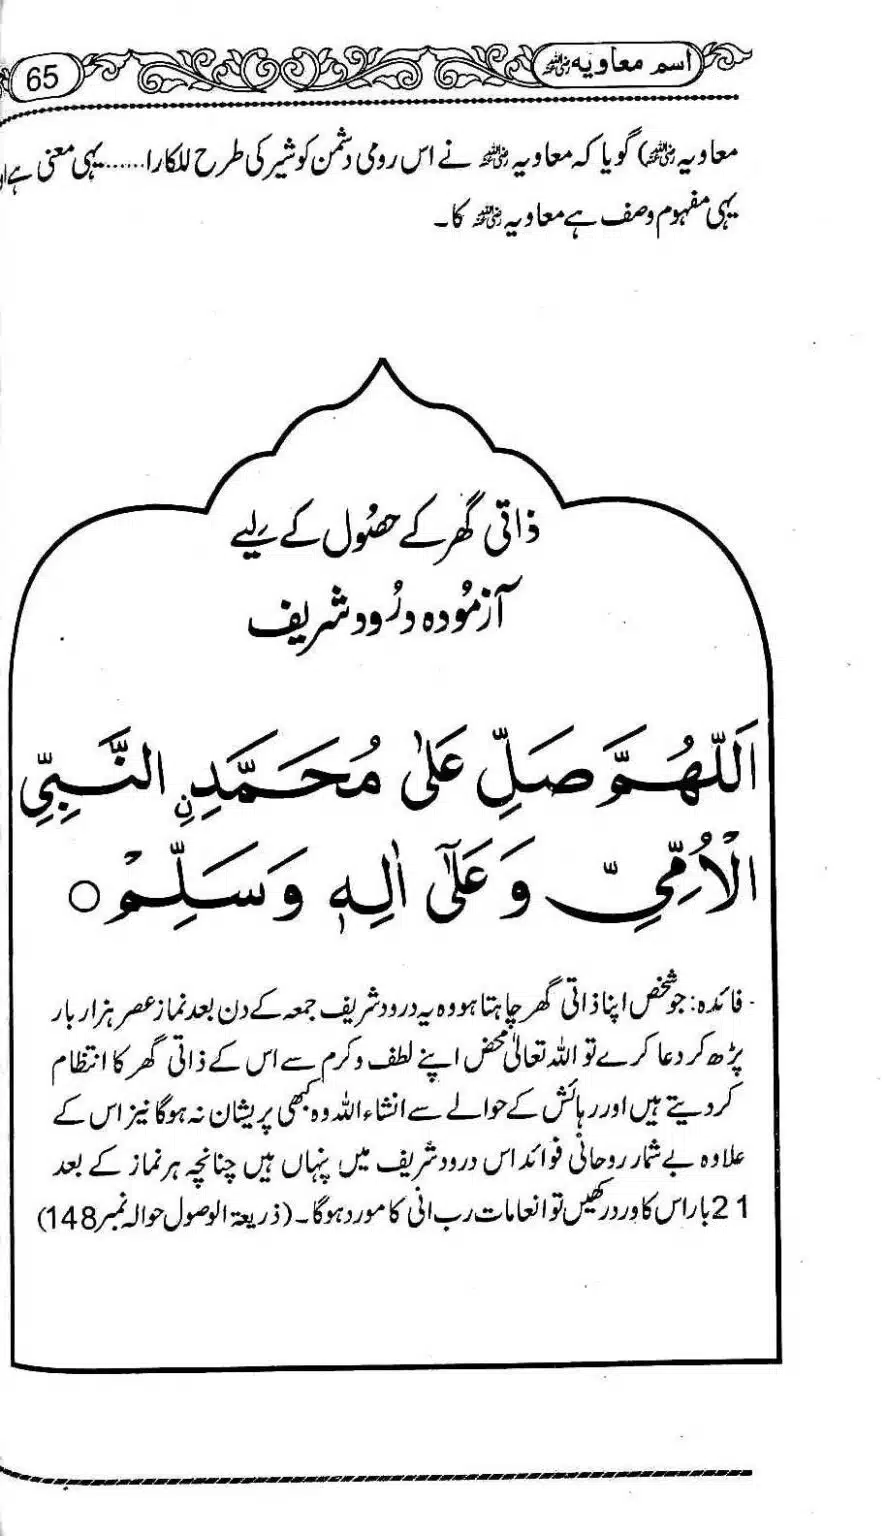 65
اسم معاویہ ﷜
معاویہ ﷜) گویا کہ معاویہ ﷜ نے اس رومی دشمن کو شیر کی طرح للکارا......یہی معنی ہے
یہی مفہوم وصف ہے معاویہ ﷜ کا۔
ذاتی گھر کے حصُول کے لیے
آزمُودہ درُود شریف
اَللّٰهُمَّ صَلِّ عَلٰی مُحَمَّدِنِ النَّبِیِّ
الْاُمِّیِّ وَعَلٰٓی اٰلِهٖ وَسَلِّمْ ○
فائدہ: جو شخص اپنا ذاتی گھر چاہتا ہو وہ یہ درود شریف جمعہ کے دن بعد نماز عصر ہزار بار
پڑھ کر دعا کرے تو اللہ تعالیٰ محض اپنے لطف و کرم سے اس کے ذاتی گھر کا انتظام
کر دیتے ہیں اور رہائش کے حوالے سے انشاء اللہ وہ کبھی پریشان نہ ہوگا نیز اس کے
علاوہ بے شمار روحانی فوائد اس درود شریف میں پنہاں ہیں چنانچہ ہر نماز کے بعد
21 بار اس کا ورد رکھیں تو انعامات رب انی کا مورد ہوگا۔ (ذریعۃ الوصول حوالہ نمبر 148)